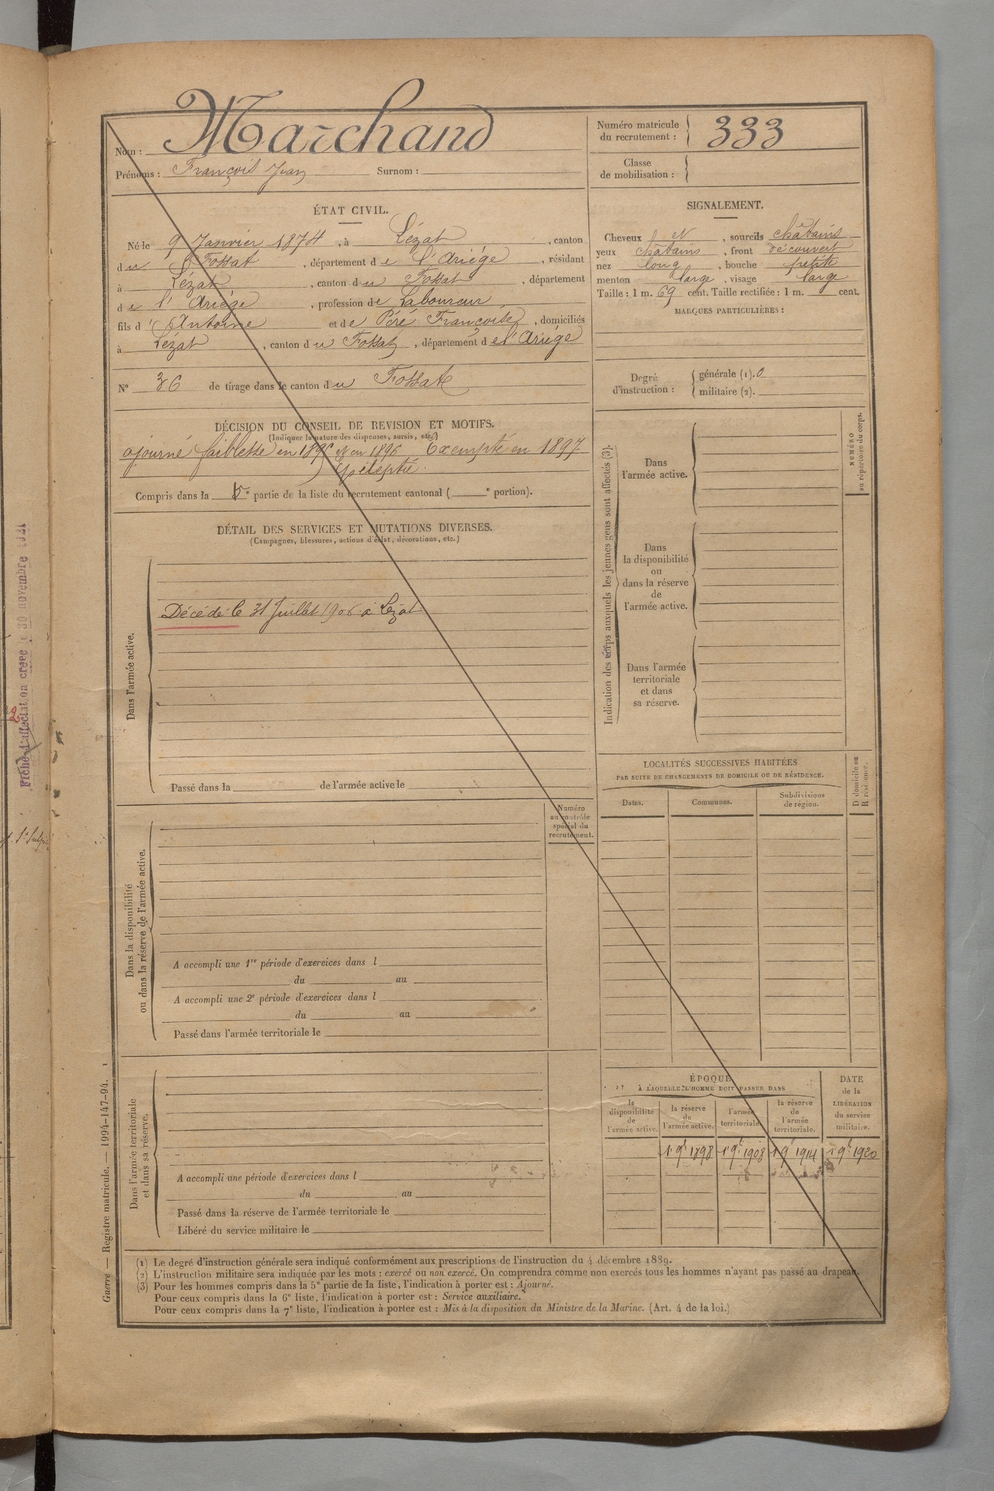 Nom : Marchand
Prénoms : François Jean Surnom :
Numéro matricule du recrutement : 333
Classe de mobilisation :
ÉTAT CIVIL.
Né le 9 Janvier 1874, à Lézat, canton
du Fossat, département de l'Ariège, résidant
à Lézat, canton du Fossat, département
de l'Ariège, profession de Laboureur
fils d'Antoine et de Péré Françoise, domiciliés
à Lézat, canton du Fossat, département de l'Ariège
N° 36 de tirage dans le canton du Fossat
SIGNALEMENT.
Cheveux et, sourcils châtains
yeux châtains, front découvert
nez long, bouche petite
menton large, visage large
Taille : 1 m. 69 cent. Taille rectifiée : 1 m. cent.
MARQUES PARTICULIÈRES :
Degré d'instruction : générale (1). 0
militaire (2).
DÉCISION DU CONSEIL DE REVISION ET MOTIFS.
(Indiquer la nature des dispenses, sursis, etc.)
ajourné faiblesse en 1895 et en 1896 Exempté en 1897
Epilepsie
Compris dans la 5e partie de la liste du recrutement cantonal ( e portion).
DÉTAIL DES SERVICES ET MUTATIONS DIVERSES.
(Campagnes, blessures, actions d'éclat, décorations, etc.)
Dans l'armée active.
Décédé le 31 Juillet 1906 à Lézat
Passé dans la de l'armée active le
Indication des corps auxquels les jeunes gens sont affectés (3).
Dans
l'armée active.
Dans
la disponibilité
ou
dans la réserve
de
l'armée active.
Dans l'armée
territoriale
et dans
sa réserve.
NUMÉRO
au répertoire du corps.
LOCALITÉS SUCCESSIVES HABITÉES
PAR SUITE DE CHANGEMENTS DE DOMICILE OU DE RÉSIDENCE.
Dates.
Communes.
Subdivisions
de région.
D domicile ou
R résidence.
Dans la disponibilité
ou dans la réserve de l'armée active.
Numéro
au contrôle
spécial du
recrutement.
A accompli une 1re période d'exercices dans l
du au
A accompli une 2e période d'exercices dans l
du au
Passé dans l'armée territoriale le
Dans l'armée territoriale
et dans sa réserve.
A accompli une période d'exercices dans l
du au
Passé dans la réserve de l'armée territoriale le
Libéré du service militaire le
ÉPOQUE
À LAQUELLE L'HOMME DOIT PASSER DANS
la
disponibilité
de
l'armée active.
la réserve
de
l'armée active.
l'armée
territoriale.
la réserve
de
l'armée
territoriale.
DATE
de la
LIBÉRATION
du service
militaire.
1 9e 1898 1 9e 1908 1 9e 1914 1 9e 1920
(1) Le degré d'instruction générale sera indiqué conformément aux prescriptions de l'instruction du 4 décembre 1889.
(2) L'instruction militaire sera indiquée par les mots : exercé ou non exercé. On comprendra comme non exercés tous les hommes n'ayant pas passé au drapeau.
(3) Pour les hommes compris dans la 5e partie de la liste, l'indication à porter est : Ajourné.
Pour ceux compris dans la 6e liste, l'indication à porter est : Service auxiliaire.
Pour ceux compris dans la 7e liste, l'indication à porter est : Mis à la disposition du Ministre de la Marine. (Art. 4 de la loi.)
Guerre — Registre matricule. — 1994-147-94.
Fiche d'affectation créée le 30 novembre 1921